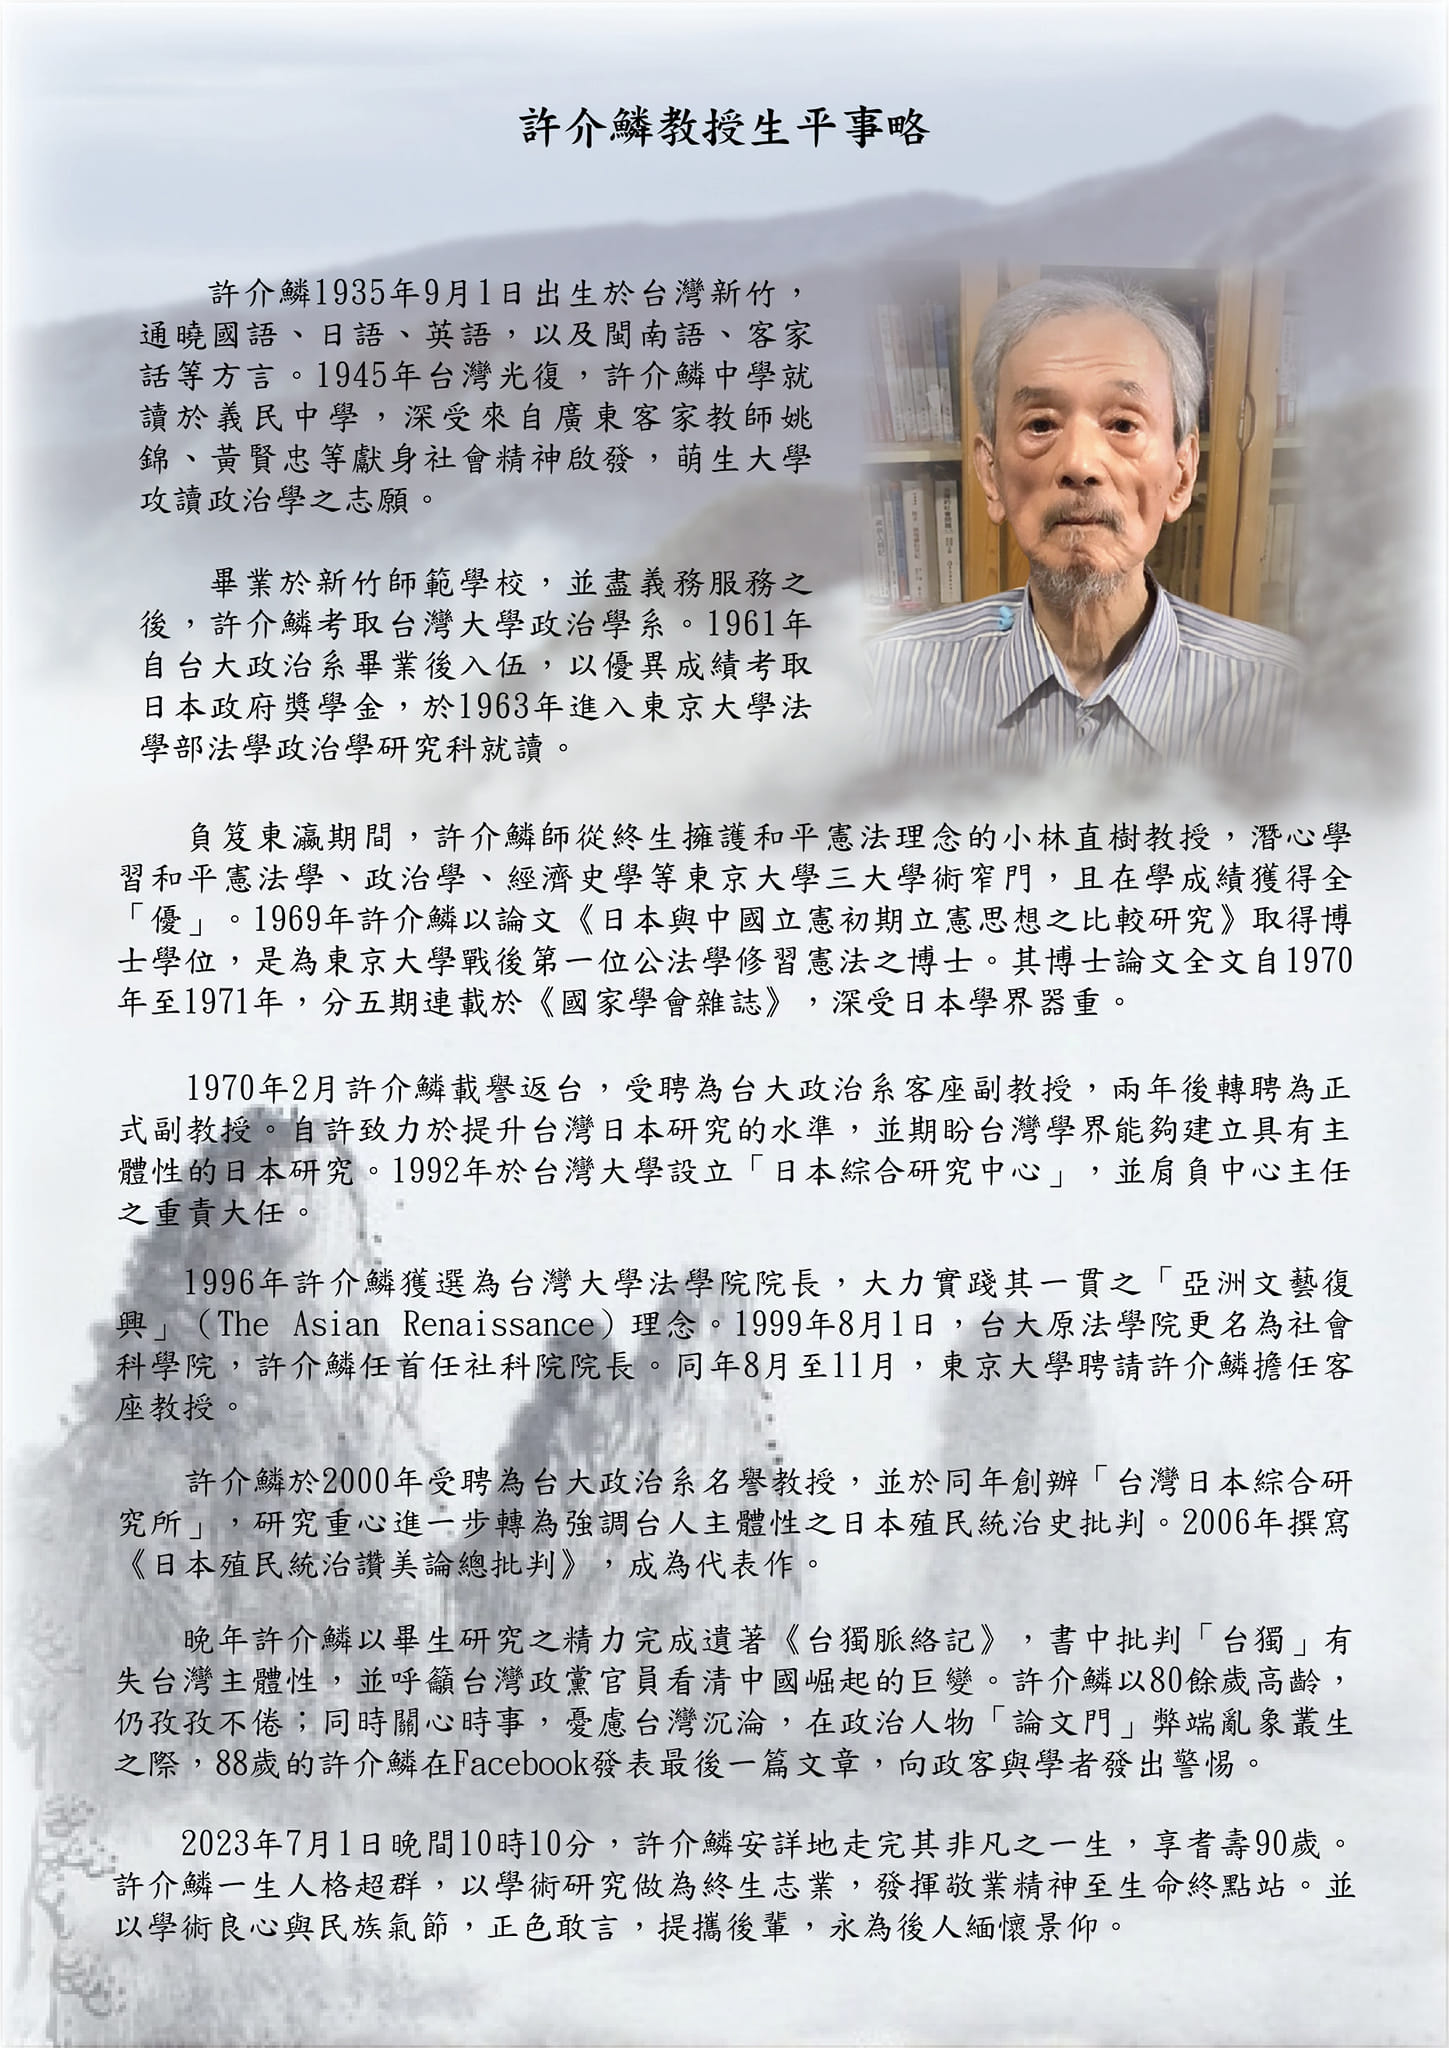 許介鱗教授生平事略
許介鱗1935年9月1日出生於台灣新竹，
通曉國語、日語、英語，以及閩南語、客家
話等方言。1945年台灣光復，許介鱗中學就
讀於義民中學，深受來自廣東客家教師姚
錦、黃賢忠等獻身社會精神啟發，萌生大學
攻讀政治學之志願。
畢業於新竹師範學校，並盡義務服務之
後，許介鱗考取台灣大學政治學系。1961年
自台大政治系畢業後入伍，以優異成績考取
日本政府獎學金，於1963年進入東京大學法
學部法學政治學研究科就讀。
負笈東瀛期間，許介鱗師從終生擁護和平憲法理念的小林直樹教授，潛心學
習和平憲法學、政治學、經濟史學等東京大學三大學術窄門，且在學成績獲得全
「優」。1969年許介鱗以論文《日本與中國立憲初期立憲思想之比較研究》取得博
士學位，是為東京大學戰後第一位公法學修習憲法之博士。其博士論文全文自1970
年至1971年，分五期連載於《國家學會雜誌》，深受日本學界器重。
1970年2月許介鱗載譽返台，受聘為台大政治系客座副教授，兩年後轉聘為正
式副教授。自許致力於提升台灣日本研究的水準，並期盼台灣學界能夠建立具有主
體性的日本研究。1992年於台灣大學設立「日本綜合研究中心」，並肩負中心主任
之重責大任。
1996年許介鱗獲選為台灣大學法學院院長，大力實踐其一貫之「亞洲文藝復
興」（The Asian Renaissance）理念。1999年8月1日，台大原法學院更名為社會
科學院，許介鱗任首任社科院院長。同年8月至11月，東京大學聘請許介鱗擔任客
座教授。
許介鱗於2000年受聘為台大政治系名譽教授，並於同年創辦「台灣日本綜合研
究所」，研究重心進一步轉為強調台人主體性之日本殖民統治史批判。2006年撰寫
《日本殖民統治讚美論總批判》，成為代表作。
晚年許介鱗以畢生研究之精力完成遺著《台獨脈絡記》，書中批判「台獨」有
失台灣主體性，並呼籲台灣政黨官員看清中國崛起的巨變。許介鱗以80餘歲高齡，
仍孜孜不倦；同時關心時事，憂慮台灣沉淪，在政治人物「論文門」弊端亂象叢生
之際，88歲的許介鱗在Facebook發表最後一篇文章，向政客與學者發出警惕。
2023年7月1日晚間10時10分，許介鱗安詳地走完其非凡之一生，享耆壽90歲。
許介鱗一生人格超群，以學術研究做為終生志業，發揮敬業精神至生命終點站。並
以學術良心與民族氣節，正色敢言，提攜後輩，永為後人緬懷景仰。